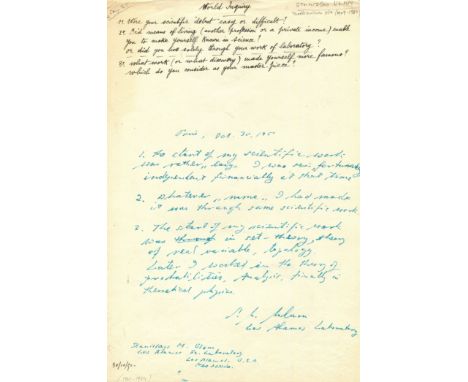 World Inquiry
1º. Were your scientific debut easy or difficult?
2º. Did means of living (another profession or a private income) make
you to make yourself known in science?
or did you live solely through your work of laboratory?
3º. What work (or what discovery) made yourself more famous?
which do you consider as your master piece?
Paris, Oct. 30, 195
1. The start of my scientific work
was rather easy. I was
independent financially at that time
2. Whatever "name" I had made
it was through some scientific work
3. The start of my scientific work
was through in set-theory, theory
of real variable, topology
Later I worked in the theory of
probabilities, Analysis, finally in
theoretical physics
S. M. Ulam
Los Alamos Laboratory
Stanislaus M. Ulam
Los Alamos Sc. Laboratory
Los Alamos, U.S.A
New Mexico
30/10/50